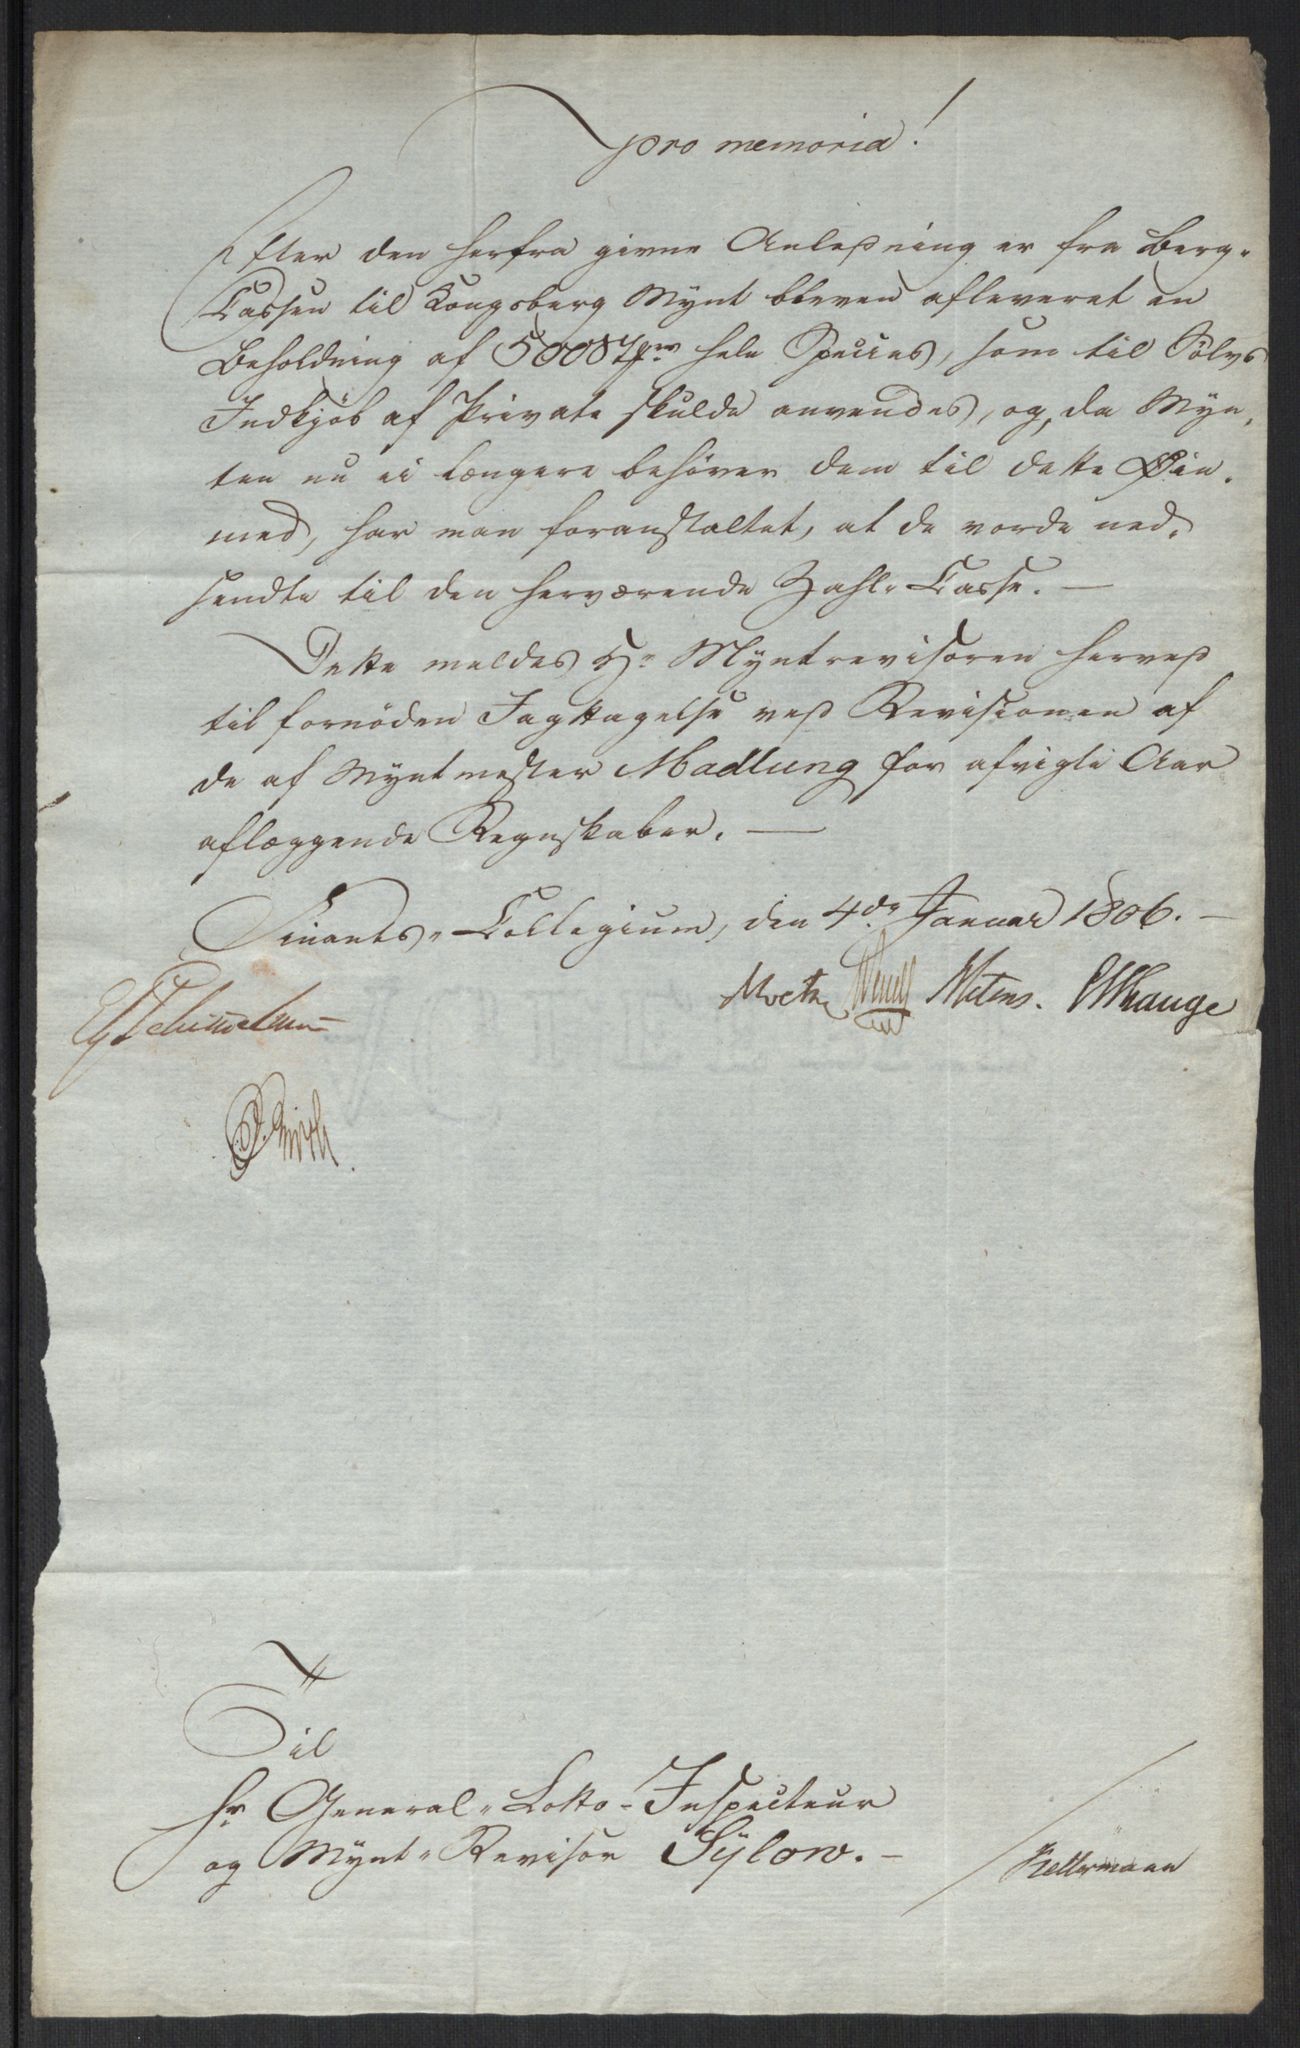 pro memoria!
Efter den herfra givne Anledning er fra Berg-
Cassen til Kongsberg Mynt bleven afleveret en
Beholdning af 5000 Spr hele Species, som til Sölvs
Indkjöb af Private skulde anvendes, og, da Myn-
ten nu ei længere behöver dem til dette Øie-
med, har man foranstaltet, at de vorde ned-
sendte til den herværende Zahl-Casse. —
Dette meldes Hr Myntrevisoren herved
til fornöden Iagttagelse ved Revisionen af
de af Myntmester Madlung for afvigte Aar
aflæggende Regnskaber. —
Finants-Collegium, den 4de Januar 1806. —
Schimmelmann
Til
Hr General-Lotto-Inspecteur
og Mynt-Revisor Sylow. —
Kellermann